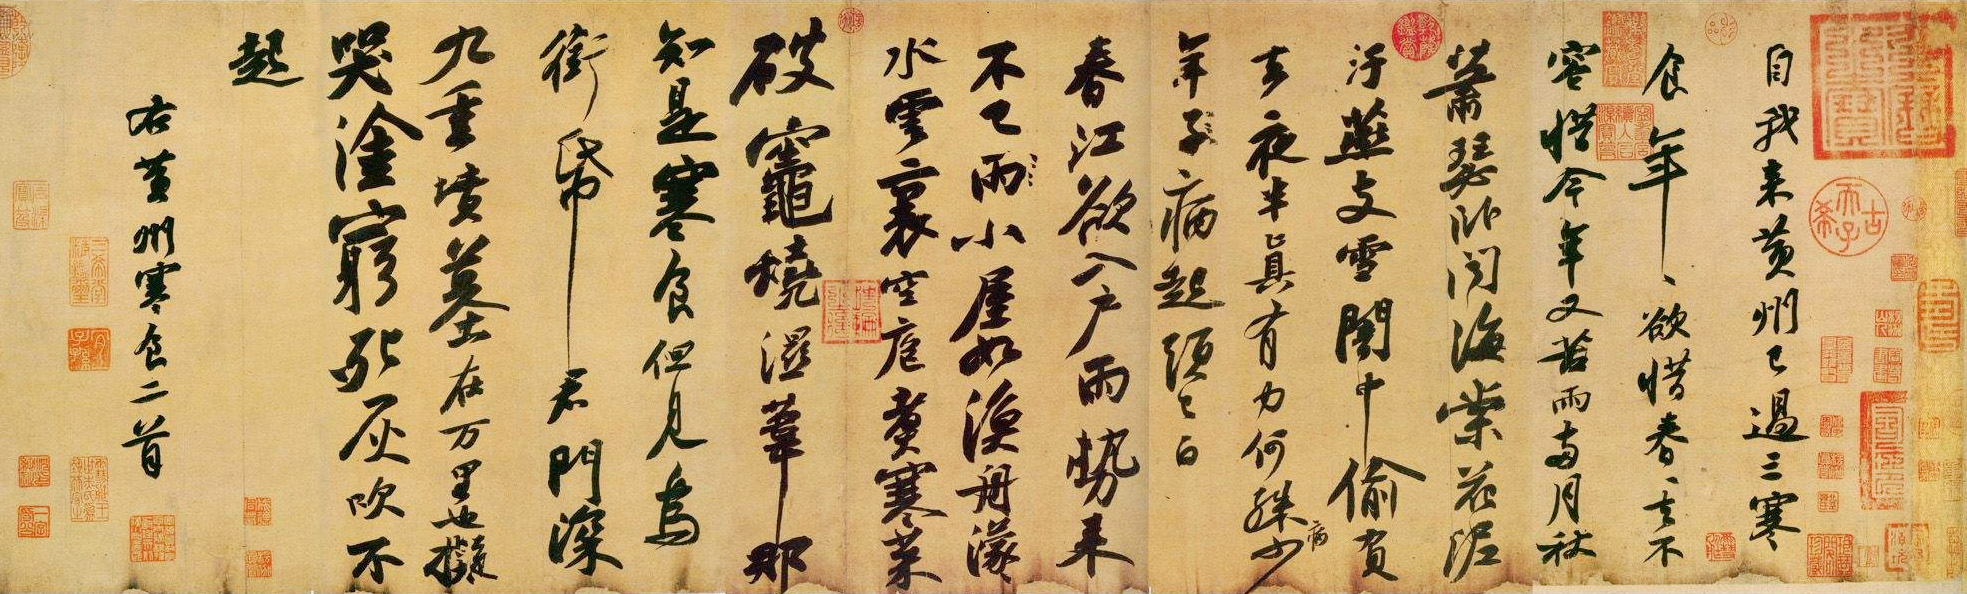 古希天子
自我来黄州已過三寒
食年〻欲惜春〻去不
容惜今年又苦雨兩月秋
蕭瑟卧聞海棠花泥
汙燕支雪闇中偷負
去夜半真有力何殊少病
年子病起頭已白
春江欲入戶雨勢来
不已雨小屋如漁舟濛
水雲裏空庖煮寒菜
破竈燒濕葦那
知是寒食但見烏
銜帋君門深
九重墳墓在万里也擬
哭塗窮死灰吹不
起
右黄州寒食二首
乾隆鑑賞
三希堂精鑑璽
宜子孫